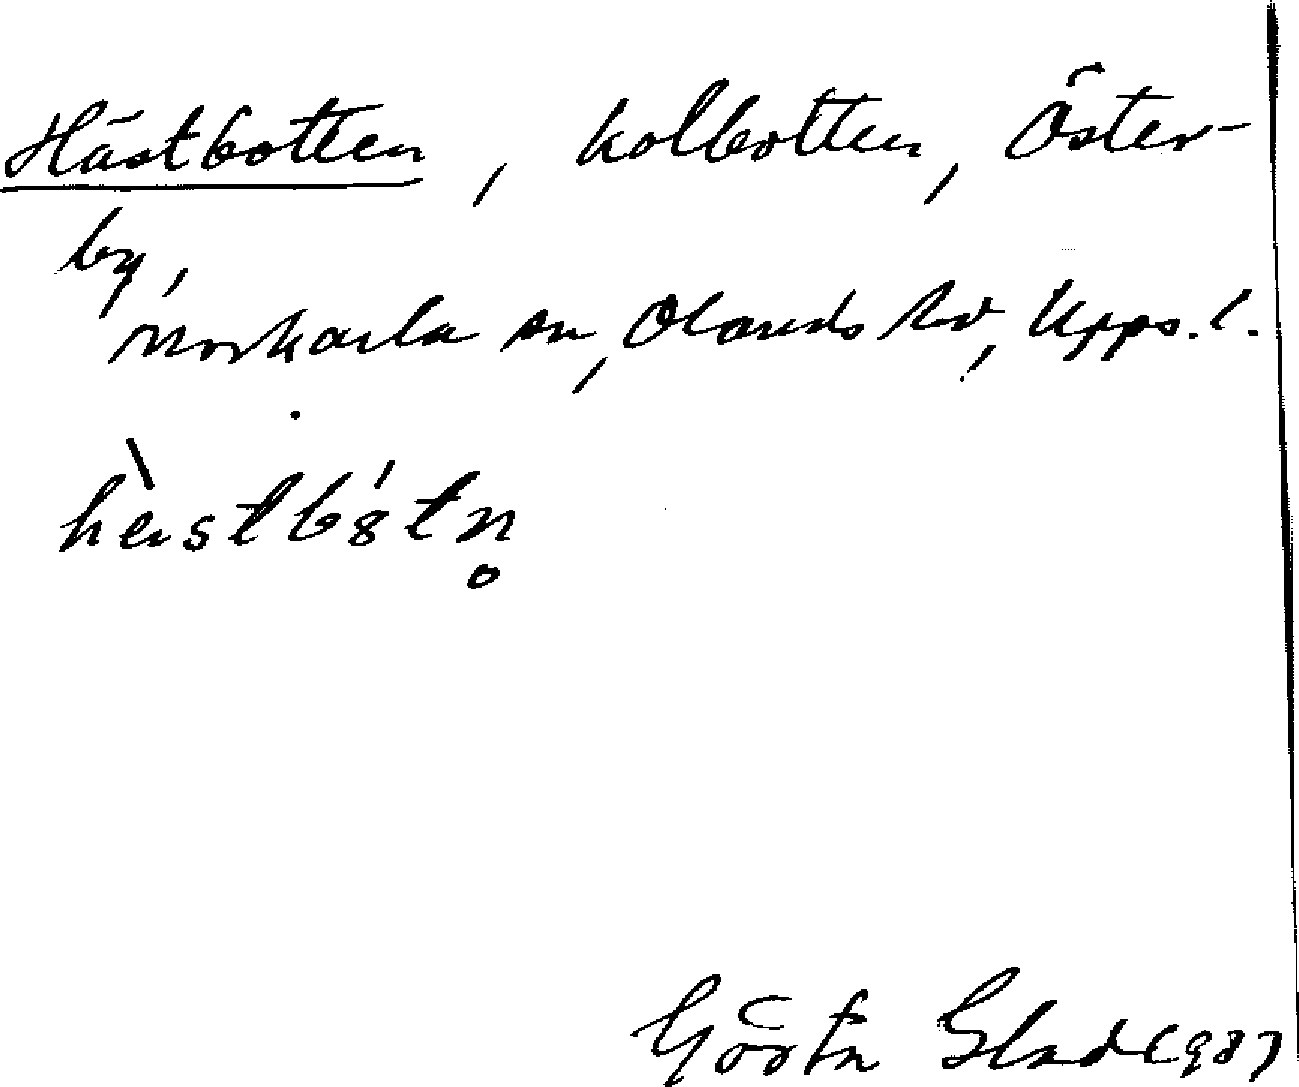 Hästbotten, kolbotten, Öster-
by,
Morkarla sn, Olands hd, Upps. l.
hä̀stbót n̥
Gösta Glad 1987